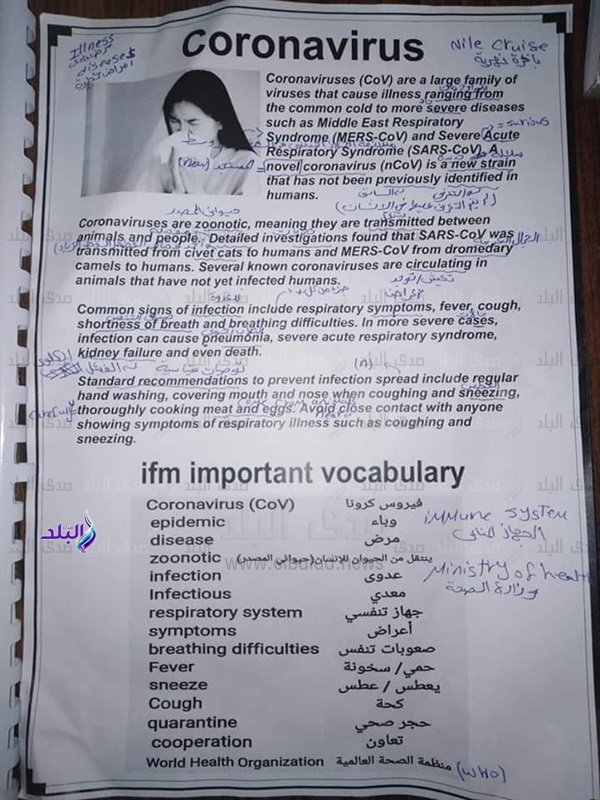 Coronavirus
Illness
diseases
Nile Cruise
Coronaviruses (CoV) are a large family of
viruses that cause illness ranging from
the common cold to more severe diseases
such as Middle East Respiratory
Syndrome (MERS-CoV) and Severe Acute
Respiratory Syndrome (SARS-CoV). A
novel coronavirus (nCoV) is a new strain
that has not been previously identified in
humans.
Coronaviruses are zoonotic, meaning they are transmitted between
animals and people. Detailed investigations found that SARS-CoV was
transmitted from civet cats to humans and MERS-CoV from dromedary
camels to humans. Several known coronaviruses are circulating in
animals that have not yet infected humans.
Common signs of infection include respiratory symptoms, fever, cough,
shortness of breath and breathing difficulties. In more severe cases,
infection can cause pneumonia, severe acute respiratory syndrome,
kidney failure and even death.
Standard recommendations to prevent infection spread include regular
hand washing, covering mouth and nose when coughing and sneezing,
thoroughly cooking meat and eggs. Avoid close contact with anyone
showing symptoms of respiratory illness such as coughing and
sneezing.
ifm important vocabulary
Coronavirus (CoV) فيروس كرونا
epidemic وباء
disease مرض
zoonotic ينتقل من الحيوان للإنسان (حيواني المصدر)
infection عدوى
Infectious معدي
respiratory system جهاز تنفسي
symptoms أعراض
breathing difficulties صعوبات تنفس
Fever حمي/ سخونة
sneeze يعطس / عطس
Cough كحة
quarantine حجر صحي
cooperation تعاون
World Health Organization منظمة الصحة العالمية (WHO)
immune system
Ministry of health
وزارة الصحة
صدى البلد
www.elbalad.news